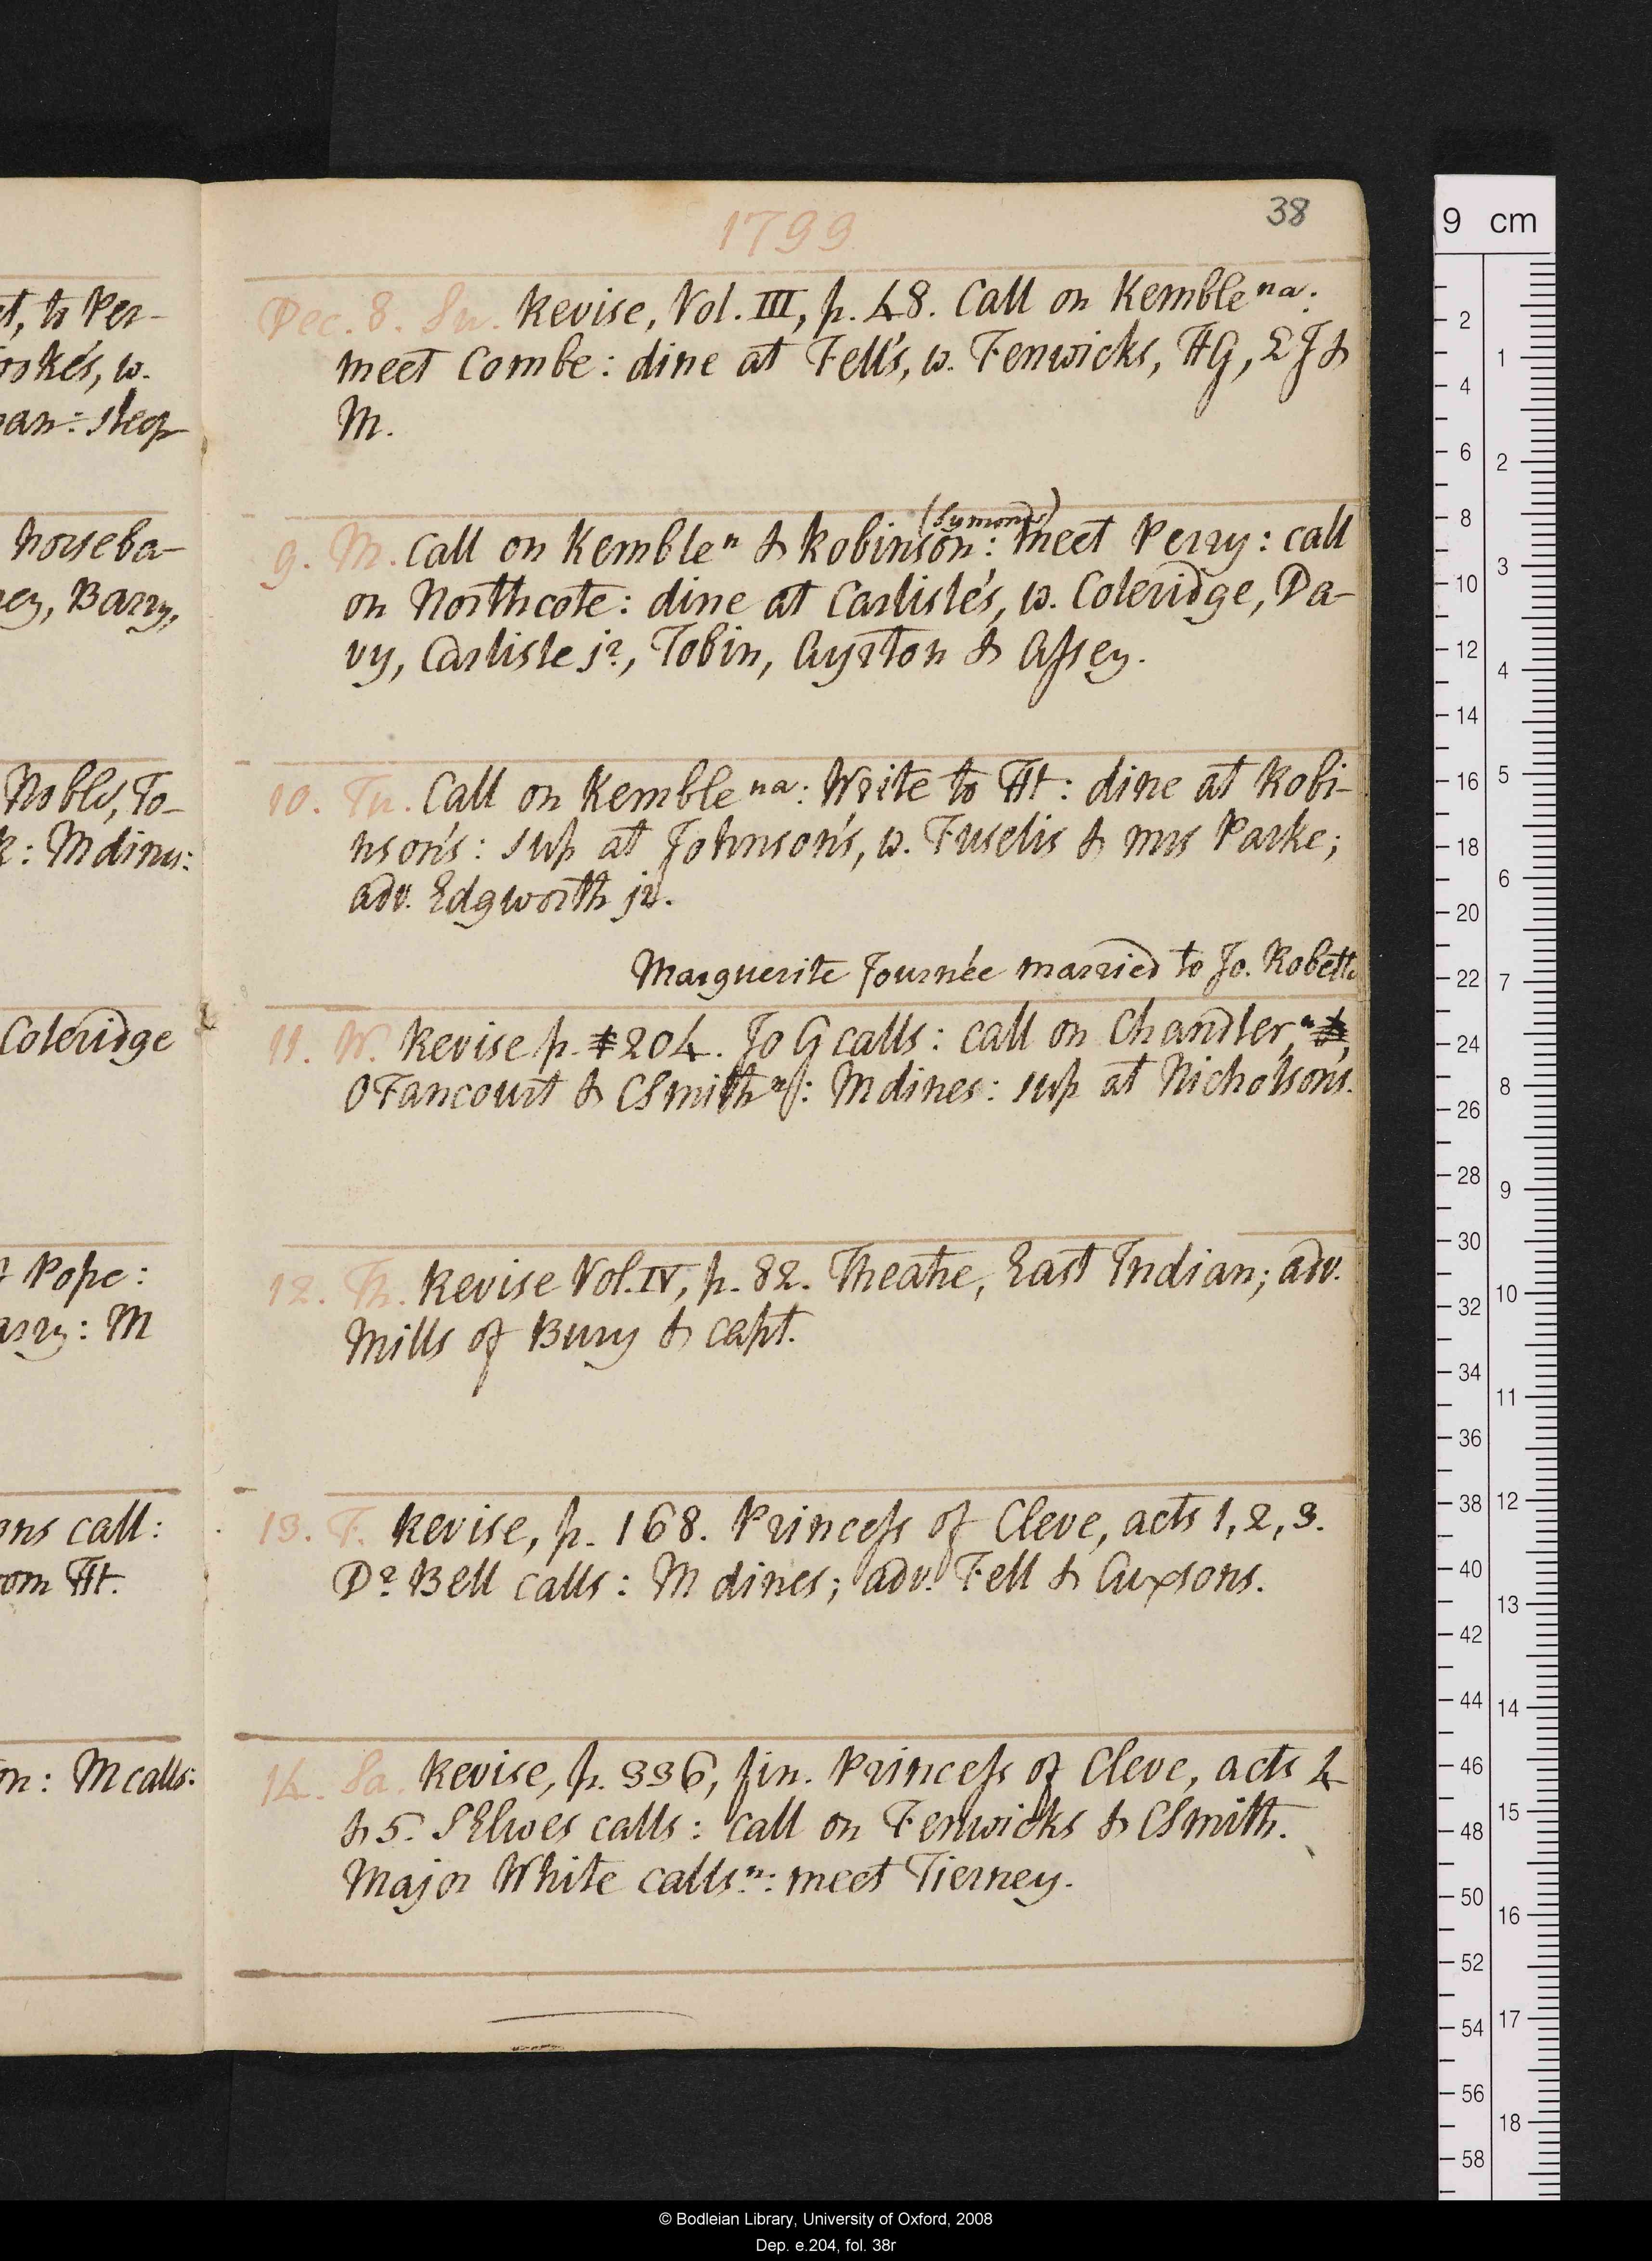 et, to Per-
ooke's, w.
man: sleep
horseba-
ney, Barry,
Nobly, To-
k: M dines:
Coleridge
t Pope:
arry: M
ons call:
rom Ht.
on: M calls:
1799
38
Dec. 8. Su. Revise, Vol. III, p. 48. Call on Kemble na:
meet Combe: dine at Fell's, w. Fenwicks, HG, EJ &
M.
(Symonds)
9. M. Call on Kemble n & Robinson: meet Perry: call
on Northcote: dine at Carlisle's, w. Coleridge, Da-
vy, Carlisle jr, Tobin, Ayrton & Assey.
10. Tu. Call on Kemble na: Write to Ht: dine at Robi-
nson's: sup at Johnson's, w. Fuselis & mrs Parke;
adv. Edgworth jr.
Marguerite Journée married to Jo. Robetti
11. W. Revise p. 204. Jo G calls: call on Chandler n,
OFancourt & CSmith n: M dines: sup at Nicholson's.
12. Th. Revise Vol. IV, p. 82. Theatre, East Indian; adv.
Mills of Bury & capt.
13. F. Revise, p. 168. Princess of Cleve, acts 1, 2, 3.
Dr Bell calls: M dines; adv. Fell & Cuxsons.
14. Sa. Revise, p. 336, fin. Princess of Cleve, acts 4
& 5. SElwes calls: call on Fenwicks & CSmith.
Major White calls n: meet Tierney.
9 cm
2
4
6
8
10
12
14
16
18
20
22
24
26
28
30
32
34
36
38
40
42
44
46
48
50
52
54
56
58
1
2
3
4
5
6
7
8
9
10
11
12
13
14
15
16
17
18
© Bodleian Library, University of Oxford, 2008
Dep. e.204, fol. 38r